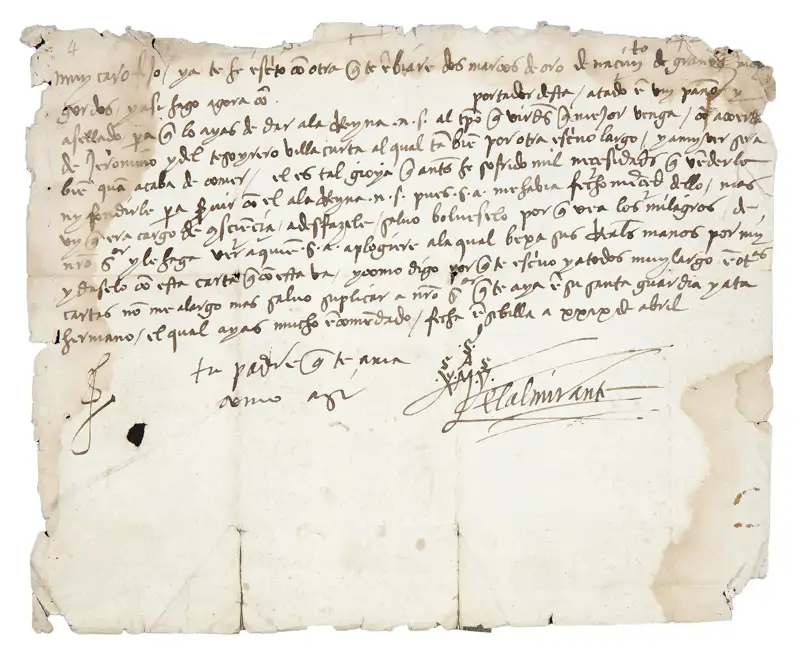 4
muy caro fijo / ya te he escrito con otra q te ēbiare dos marcos de oro de nacimi^to de granos muy
gordos / y asi hago agora cō portador desta / atado ē un paño y
asellado pa q lo ayas de dar ala Reyna . n . s . al tpō q virdes q mejor venga / cō acuerdo
de Jeronimo y del tesorero villacurta al qual tābiē por otra escrivo largo / y a my ver sera
biē quā acaba de comer / el es tal gioya q ants he sofrido mil necesidads q vēderlo
ny fondirle pa servir cō el ala Reyna . n . s . pues . s . a . me habia fecho merced dello / mas
vy q era cargo de cōsciēcia / a desfazele / salvo bolverselo por q vea los milagros / de
nro s^or y le haga ver a quiē . s . a . aplogiere ala qual bexa sus Reals manos por my
y daselo cō esta carta q cō esta va / y como digo por q te escrivo y a todos muy largo ē ot^as
cartas nō me alargo mas salvo suplicar a nro s^or q te aya ē su santa guardia y a ta
hermano / el qual ayas mucho ēcomendado / fecha ē sebilla a xxix d abril
tu padre q te ama
como asi
.s.
.s. A .s.
X M Y
el almirante